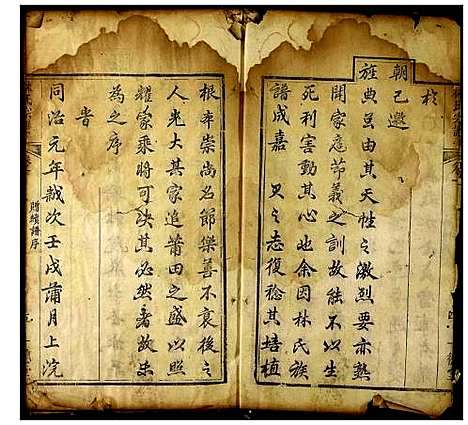 於
朝已邀
旌典豈由其天性之激烈要亦熟
聞家庭節義之訓故能不以生
死利害動其心也余因林氏族
譜成嘉又之志復稔其培植
根本崇尚名節樂善不衰後之
人光大其家追莆田之盛以照
耀家乘將可決其必然者故未
為之序
旹
同治元年歲次壬戌蒲月上浣
贈續譜序